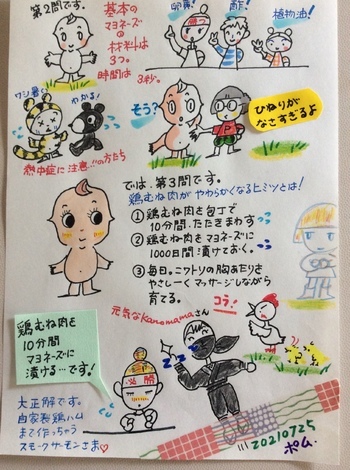 第2問です。
基本の
マヨネーズ
の
材料は
3つ。
時間は
3秒。
卵黄！
酢！
植物油！
ワシ暑い
わかる！
熱中症に注意…!!の方たち
そう？
P
ひねりが
なさすぎるよ
では、第3問です。
鶏むね肉がやわらかくなるヒミツとは！
① 鶏むね肉を包丁で
10分間、たたきまわす
② 鶏むね肉をマヨネーズに
1000日間漬けておく。
③ 毎日。ニワトリの胸あたりを
やさしーくマッサージしながら
育てる。
元気なKanomamaさん
コラ！
鶏むね肉を
10分間
マヨネーズに
漬ける…です！
必勝
zzz
大正解です。
自家製鶏ハム
まで作っちゃう
スモークサーモンさま♡
20210725
ポム.